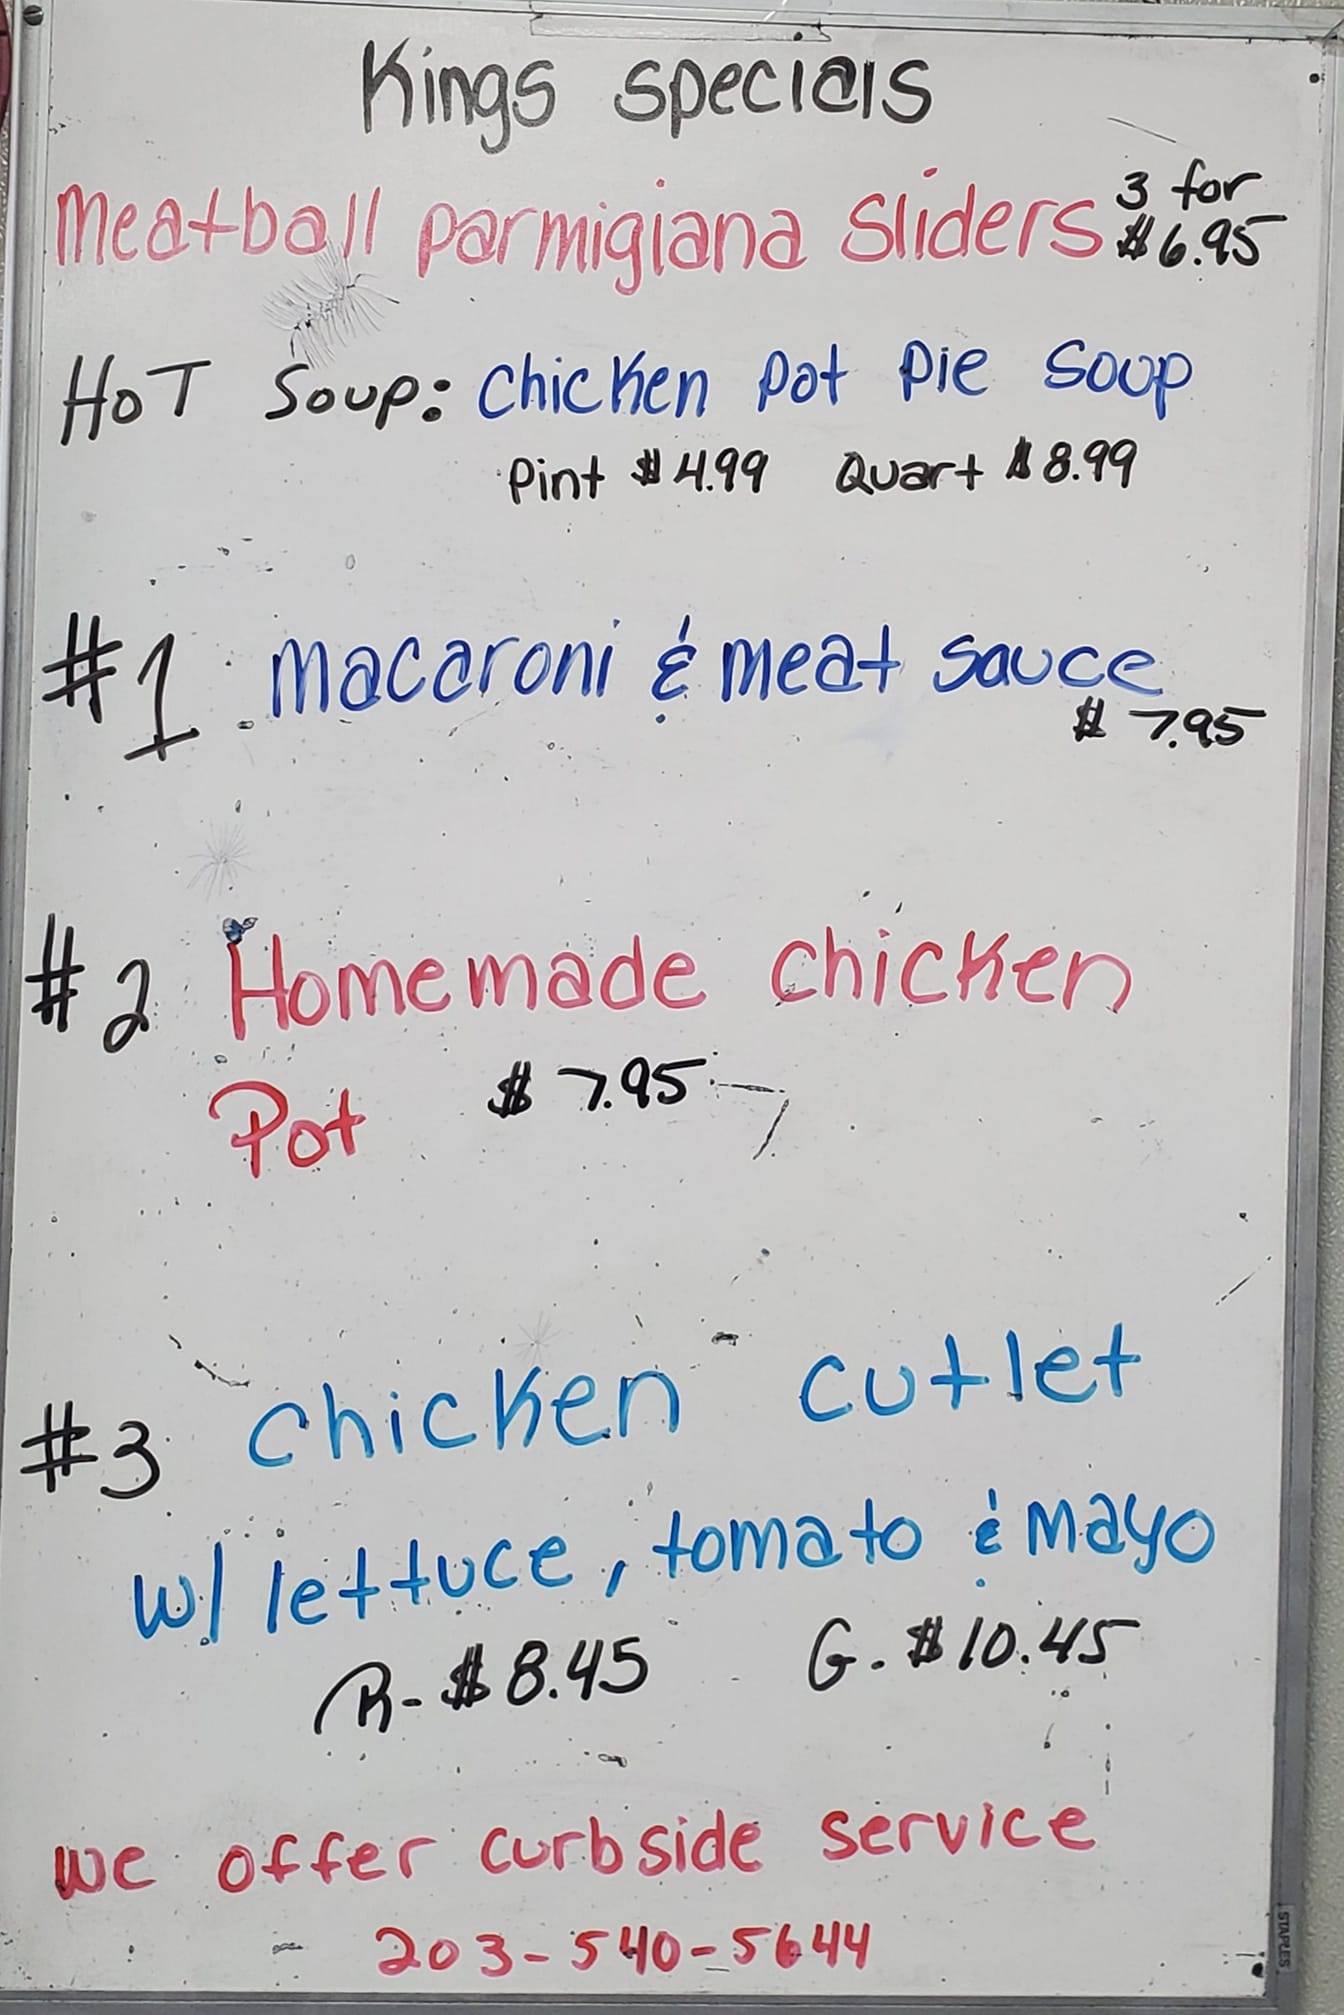 Kings specials
Meatball parmigiana sliders 3 for $6.95
HOT Soup: Chicken pot pie soup
Pint $4.99 Quart $8.99
#1 macaroni & meat sauce
$7.95
#2 Homemade chicken
Pot $7.95
#3 chicken cutlet
w/ lettuce, tomato & mayo
R-$8.45 G.$10.45
we offer curbside service
203-540-5644
STAPLES